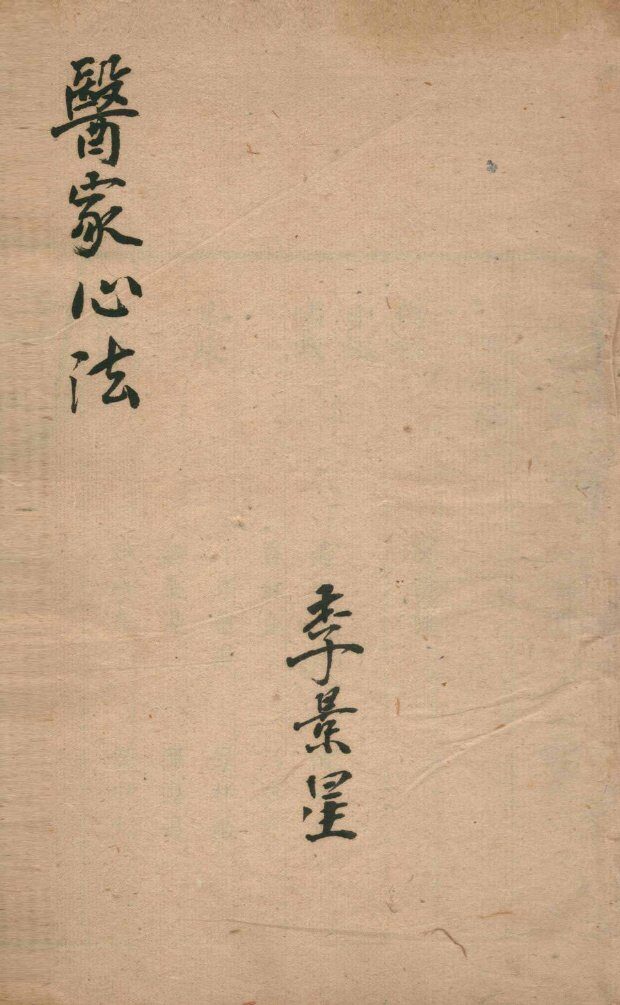 醫家心法
季景星